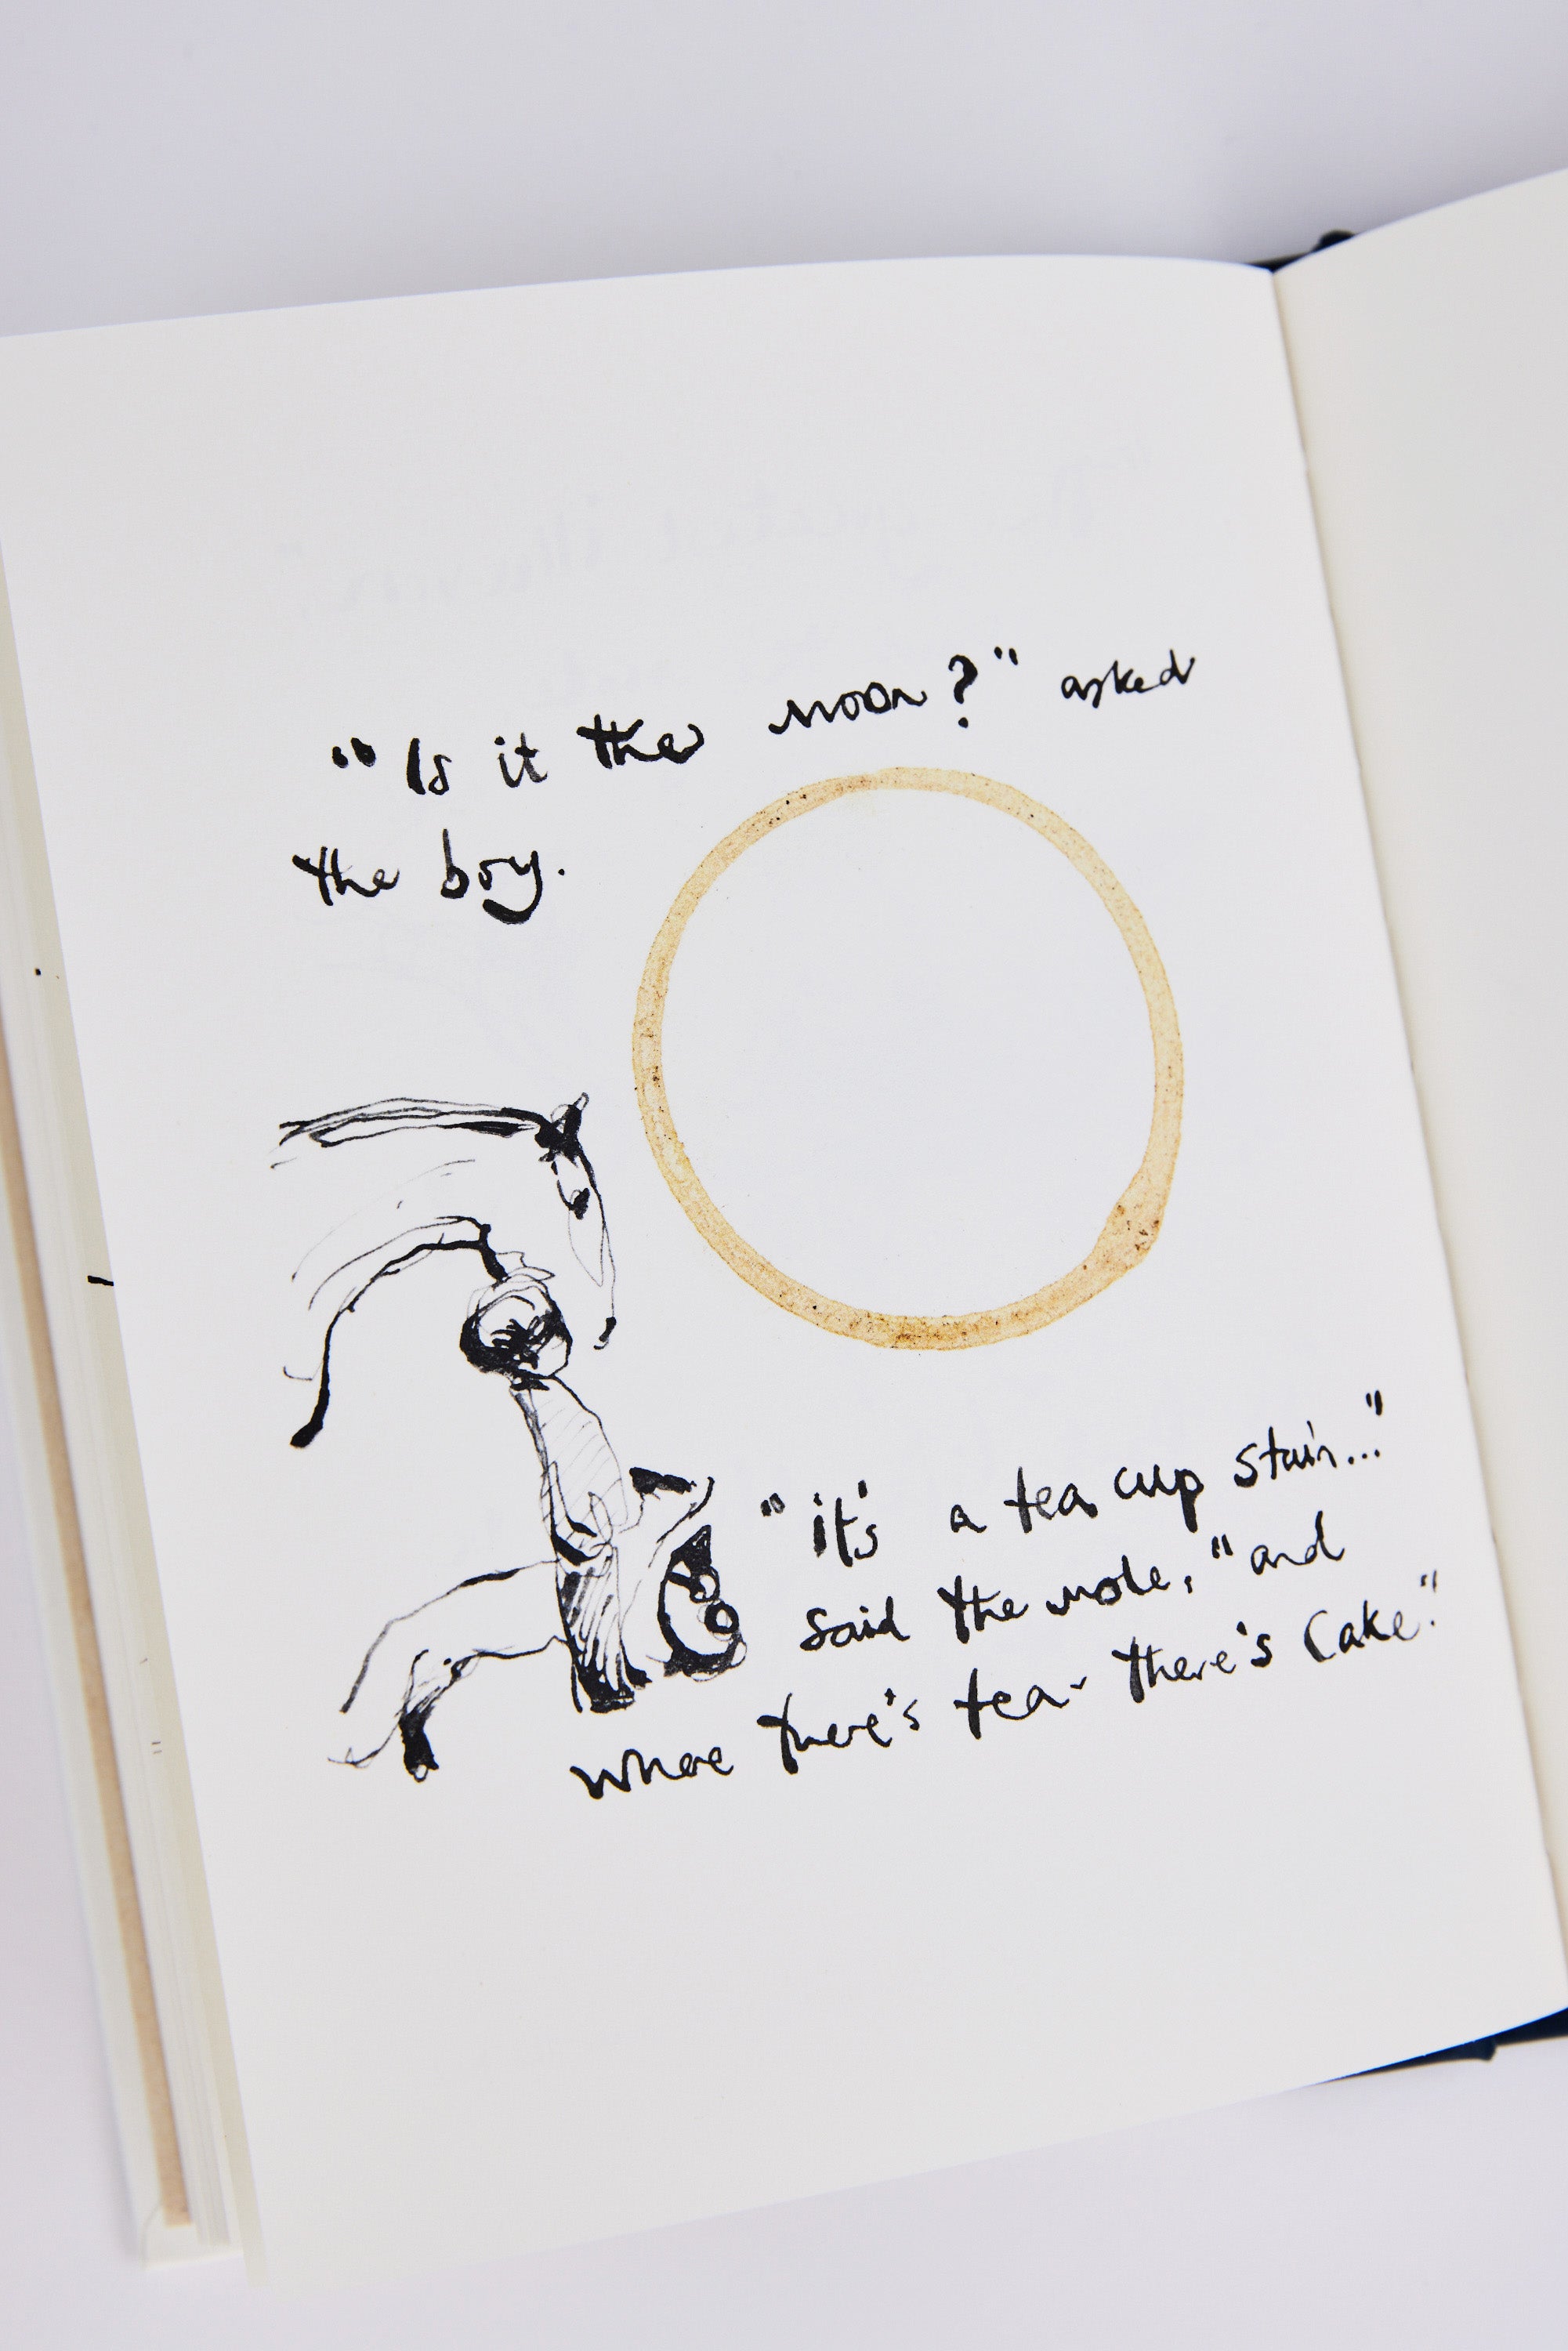 "Is it the moon?" asked
the boy.
"it's a tea cup stain..."
said the mole, "and
where there's tea - there's cake."